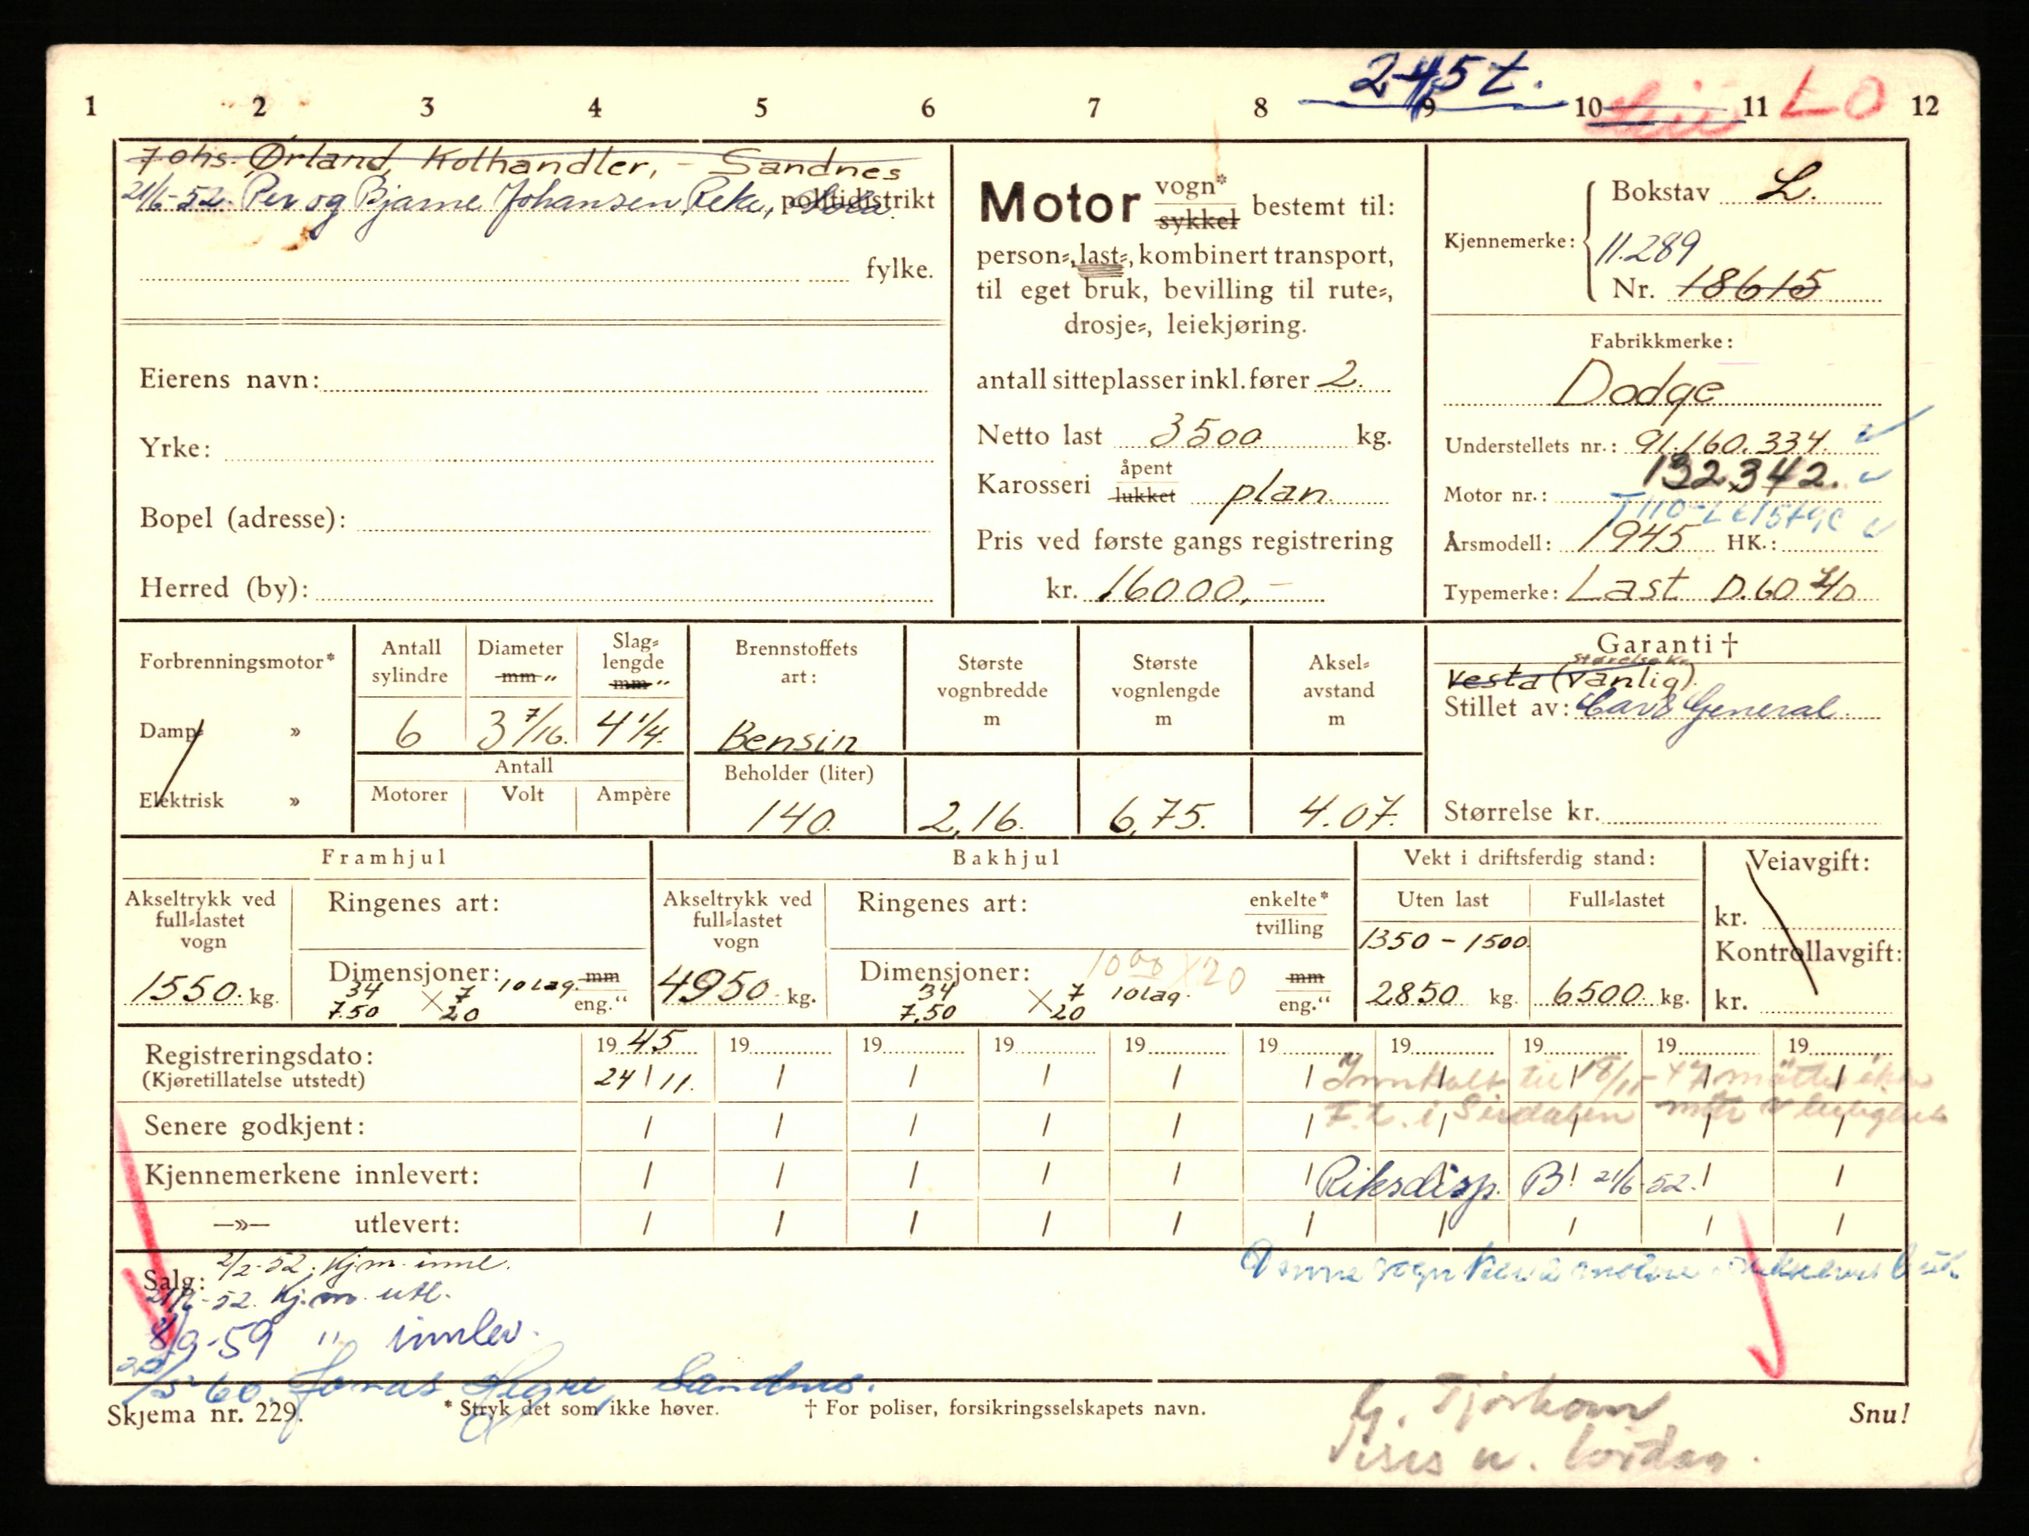 245 t.
1 2 3 4 5 6 7 8 9 10 11 LO 12
Johs. Ørland, Kolhandler, - Sandnes
21/6-52. Per og Bjarne Johansen Reke, politidistrikt
fylke.
Eierens navn:
Yrke:
Bopel (adresse):
Herred (by):
Motor vogn* sykkel bestemt til:
person-, last-, kombinert transport,
til eget bruk, bevilling til rute-,
drosje-, leiekjøring.
antall sitteplasser inkl. fører 2.
Netto last 3500 kg.
Karosseri åpent lukket plan.
Pris ved første gangs registrering
kr. 16000,-
Bokstav L.
Kjennemerke:
11.289
Nr. 18615
Fabrikkmerke:
Dodge
Understellets nr.: 91.160.334.
132342.
Motor nr.:
Årsmodell: 1945 HK.:
Typemerke: Last D.60 L/D
Forbrenningsmotor*
Damp- »
Elektrisk »
Antall sylindre
6
Diameter mm "
3 7/16.
Slag-lengde mm "
4 1/4.
Antall
Motorer Volt Ampère
Brennstoffets art:
Bensin
Beholder (liter)
140.
Største vognbredde m
2,16.
Største vognlengde m
6,75.
Aksel-avstand m
4.07.
Garanti †
Størrelse kr.
Vesta (Vanlig).
Stillet av: Cars General
Størrelse kr.
Framhjul
Akseltrykk ved full-lastet vogn
1550. kg.
Ringenes art:
Dimensjoner: 10 lag. mm eng."
34 X 7
7.50 20
Bakhjul
Akseltrykk ved full-lastet vogn
4950. kg.
Ringenes art: enkelte* tvilling
Dimensjoner: 1000 X 20 mm eng."
34 X 7 10 lag.
7,50 20
Vekt i driftsferdig stand:
Uten last Full-lastet
1350 - 1500.
2850 kg. 6500 kg.
Veiavgift:
kr.
Kontrollavgift:
kr.
Registreringsdato: 19 45 19 19 19 19 19 19 19 19 19
(Kjøretillatelse utstedt) 24/11.
Senere godkjent:
Kjennemerkene innlevert: Riksdisp. B! 21/6-52.
—»— utlevert:
Salg: 2/2-52. Kjm. innl.
21/6-52. Kj.m. utl.
8/9-59 " innlev.
20/5-60. Jonas Hegre, Sandnes.
Skjema nr. 229. * Stryk det som ikke høver. † For poliser, forsikringsselskapets navn. Snu!
G. Tjørhom